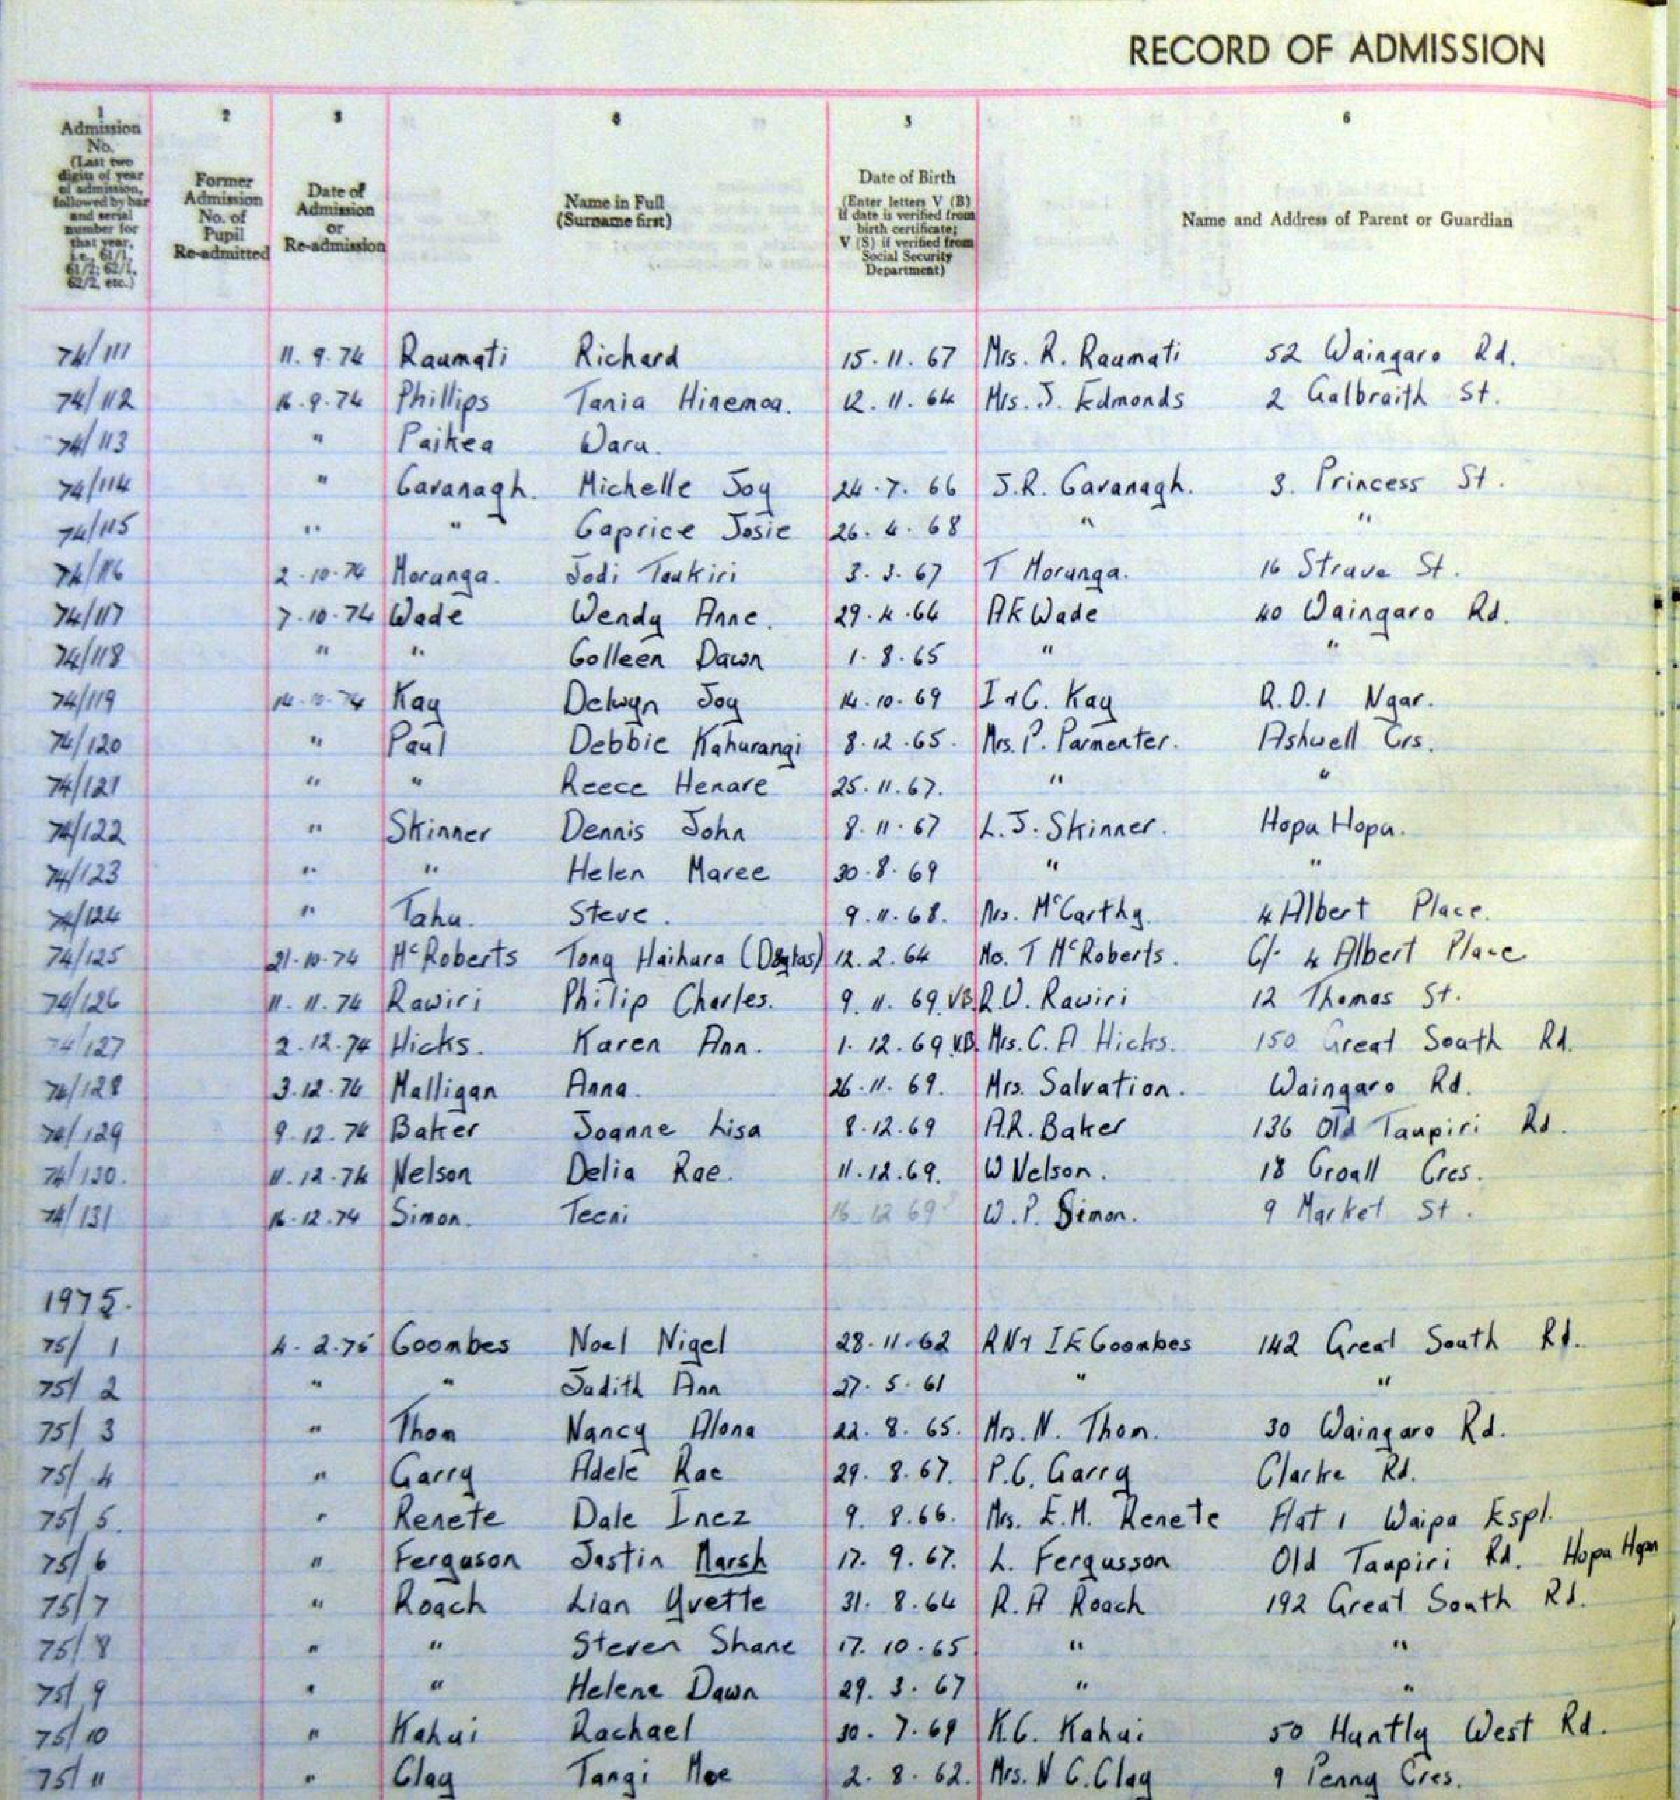 RECORD OF ADMISSION
1 2 3 4 5 6
Admission No. (Last two digits of year of admission, followed by bar and serial number for that year, i.e., 61/1, 61/2; 62/1, 62/2, etc.)
Former Admission No. of Pupil Re-admitted
Date of Admission or Re-admission
Name in Full (Surname first)
Date of Birth (Enter letters V (B) if date is verified from birth certificate; V (S) if verified from Social Security Department)
Name and Address of Parent or Guardian
74/111 11.9.74 Raumati Richard 15.11.67 Mrs. R. Raumati 52 Waingaro Rd.
74/112 16.9.74 Phillips Tania Hinemoa. 12.11.64 Mrs. J. Edmonds 2 Galbraith St.
74/113 " Paikea Waru.
74/114 " Cavanagh. Michelle Joy 24.7.66 J.R. Cavanagh. 3. Princess St.
74/115 " " Caprice Josie 26.4.68 " "
74/116 2.10.74 Moranga. Jodi Taukiri 3.3.67 T Moranga. 16 Strava St.
74/117 7.10.74 Wade Wendy Anne. 29.4.64 AF Wade 40 Waingaro Rd.
74/118 " " Colleen Dawn 1.8.65 " "
74/119 14.10.74 Kay Delwyn Joy 14.10.69 I & C. Kay R.D.1 Ngar.
74/120 " Paul Debbie Kahurangi 8.12.65. Mrs. P. Parmenter. Ashwell Crs.
74/121 " " Reece Henare 25.11.67. " "
74/122 " Skinner Dennis John 8.11.67 L.J. Skinner. Hopu Hopu.
74/123 " " Helen Maree 30.8.69 " "
74/124 " Tahu. Steve. 9.11.68. Mrs. McCarthy. 4 Albert Place.
74/125 21.10.74 McRoberts Tony Haihura (Douglas) 12.2.64 Mo. T McRoberts. C/- 4 Albert Place
74/126 11.11.74 Rawiri Philip Charles. 9.11.69. VB. R.W. Rawiri 12 Thomas St.
74/127 2.12.74 Hicks. Karen Ann. 1.12.69 V.B. Mrs. C. A Hicks. 150 Great South Rd.
74/128 3.12.74 Malligan Anna. 26.11.69. Mrs. Salvation. Waingaro Rd.
74/129 9.12.74 Baker Joanne Lisa 8.12.69 A.R. Baker 136 Old Taupiri Rd.
74/130. 11.12.74 Nelson Delia Rae. 11.12.69. W Nelson. 18 Croall Cres.
74/131 16.12.74 Simon. Tecni 16 12 69? W.P. Simon. 9 Market St.
1975.
75/ 1 4.2.75 Coombes Noel Nigel 28.11.62 RN & IE Coombes 142 Great South Rd.
75/ 2 " " Judith Ann 27.5.61 " "
75/ 3 " Thom Nancy Alona 22.8.65. Mrs. N. Thom. 30 Waingaro Rd.
75/ 4 " Garry Adele Rae 29.8.67. P.C. Garry Clarke Rd.
75/ 5. " Renete Dale Inez 9.8.66. Mrs. E.M. Renete Flat 1 Waipa Espl.
75/ 6 " Ferguson Justin Marsh 17.9.67. L. Fergusson Old Taupiri Rd. Hopu Hopu
75/7 " Roach Lian Yvette 31.8.64 R.A Roach 192 Great South Rd.
75/ 8 " " Steven Shane 17.10.65 " "
75/ 9 " " Helene Dawn 29.3.67 " "
75/10 " Kahui Rachael 30.7.69 K.C. Kahui 50 Huntly West Rd.
75/ 11 " Clay Tangi Moe 2.8.62. Mrs. N C. Clay 9 Penny Cres.